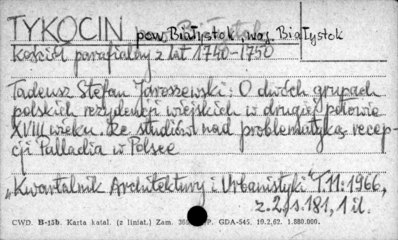 TYKOCIN pow. Białystok, woj. Białystok
Kościół parafialny z lat 1740-1750
Tadeusz Stefan Jaroszewski: O dwóch grupach
polskich rezydencji wiejskich w drugiej połowie
XVIII wieku. Ze studiów nad problematyką recep-
cji Palladia w Polsce
"Kwartalnik Architektury i Urbanistyki" T. 11: 1966,
z. 2, s. 181, 1 il.
CWD. B-15b. Karta katal. (z liniat.) Zam. P. GDA-545. 10.2.62. 1.880.000.